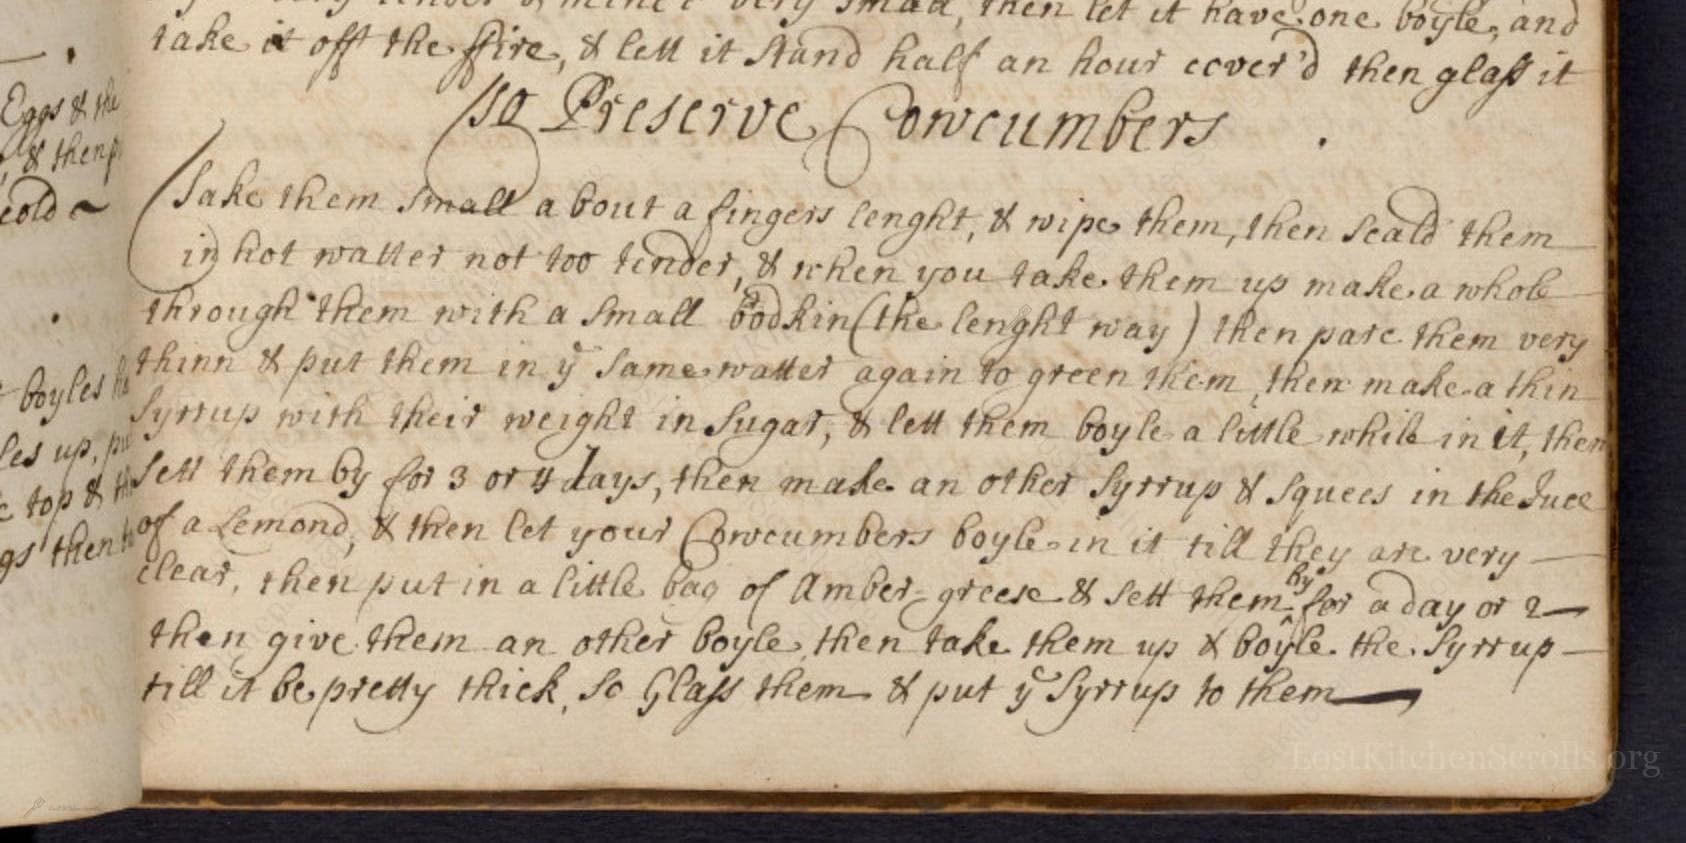 Eggs & the
& then
cold ~
boyles
les up, pu
top & th
gs then
very small, then let it have one boyle, and
take it off the ffire, & lett it stand half an hour cover'd then glass it
To Preserve Cowcumbers
Take them small about a fingers lenght, & wipe them, then scald them
in hot watter not too tender, & when you take them up make a whole
through them with a small bodkin (the lenght way) then pare them very
thinn & put them in yͤ same watter again to green them, then make a thin
Syrrup with their weight in Sugar, & lett them boyle a little while in it, then
sett them by for 3 or 4 days, then make an other Syrrup & squees in the Juce
of a Lemond, & then let your Cowcumbers boyle in it till they are very
clear, then put in a little bag of Amber-greese & sett them ^by for a day or 2
then give them an other boyle, then take them up & boyle the Syrrup
till it be pretty thick, so Glass them & put yͤ Syrrup to them
LostKitchenScrolls.org